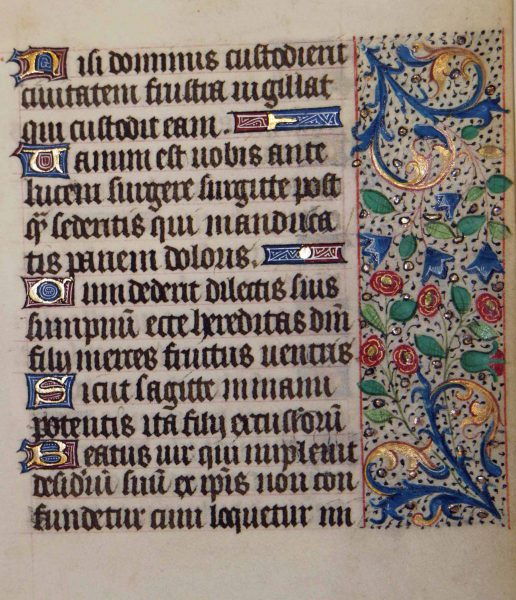 Nisi dominus custodierit
ciuitatem frustra uigillat
qui custodit eam.
Uanum est uobis ante
lucem surgere surgitte post
qᷓ sederitis qui manduca
tis panem doloris.
Cum dederit dilectis suis
sumpnū ecce hereditas dm̄
filij merces fructus uentris
Sicut sagitte in manu
potentis ita filij excussorū
Beatus uir qui impleuit
desidiū suū ex ip̄is non con
fundetur cum loquetur ini